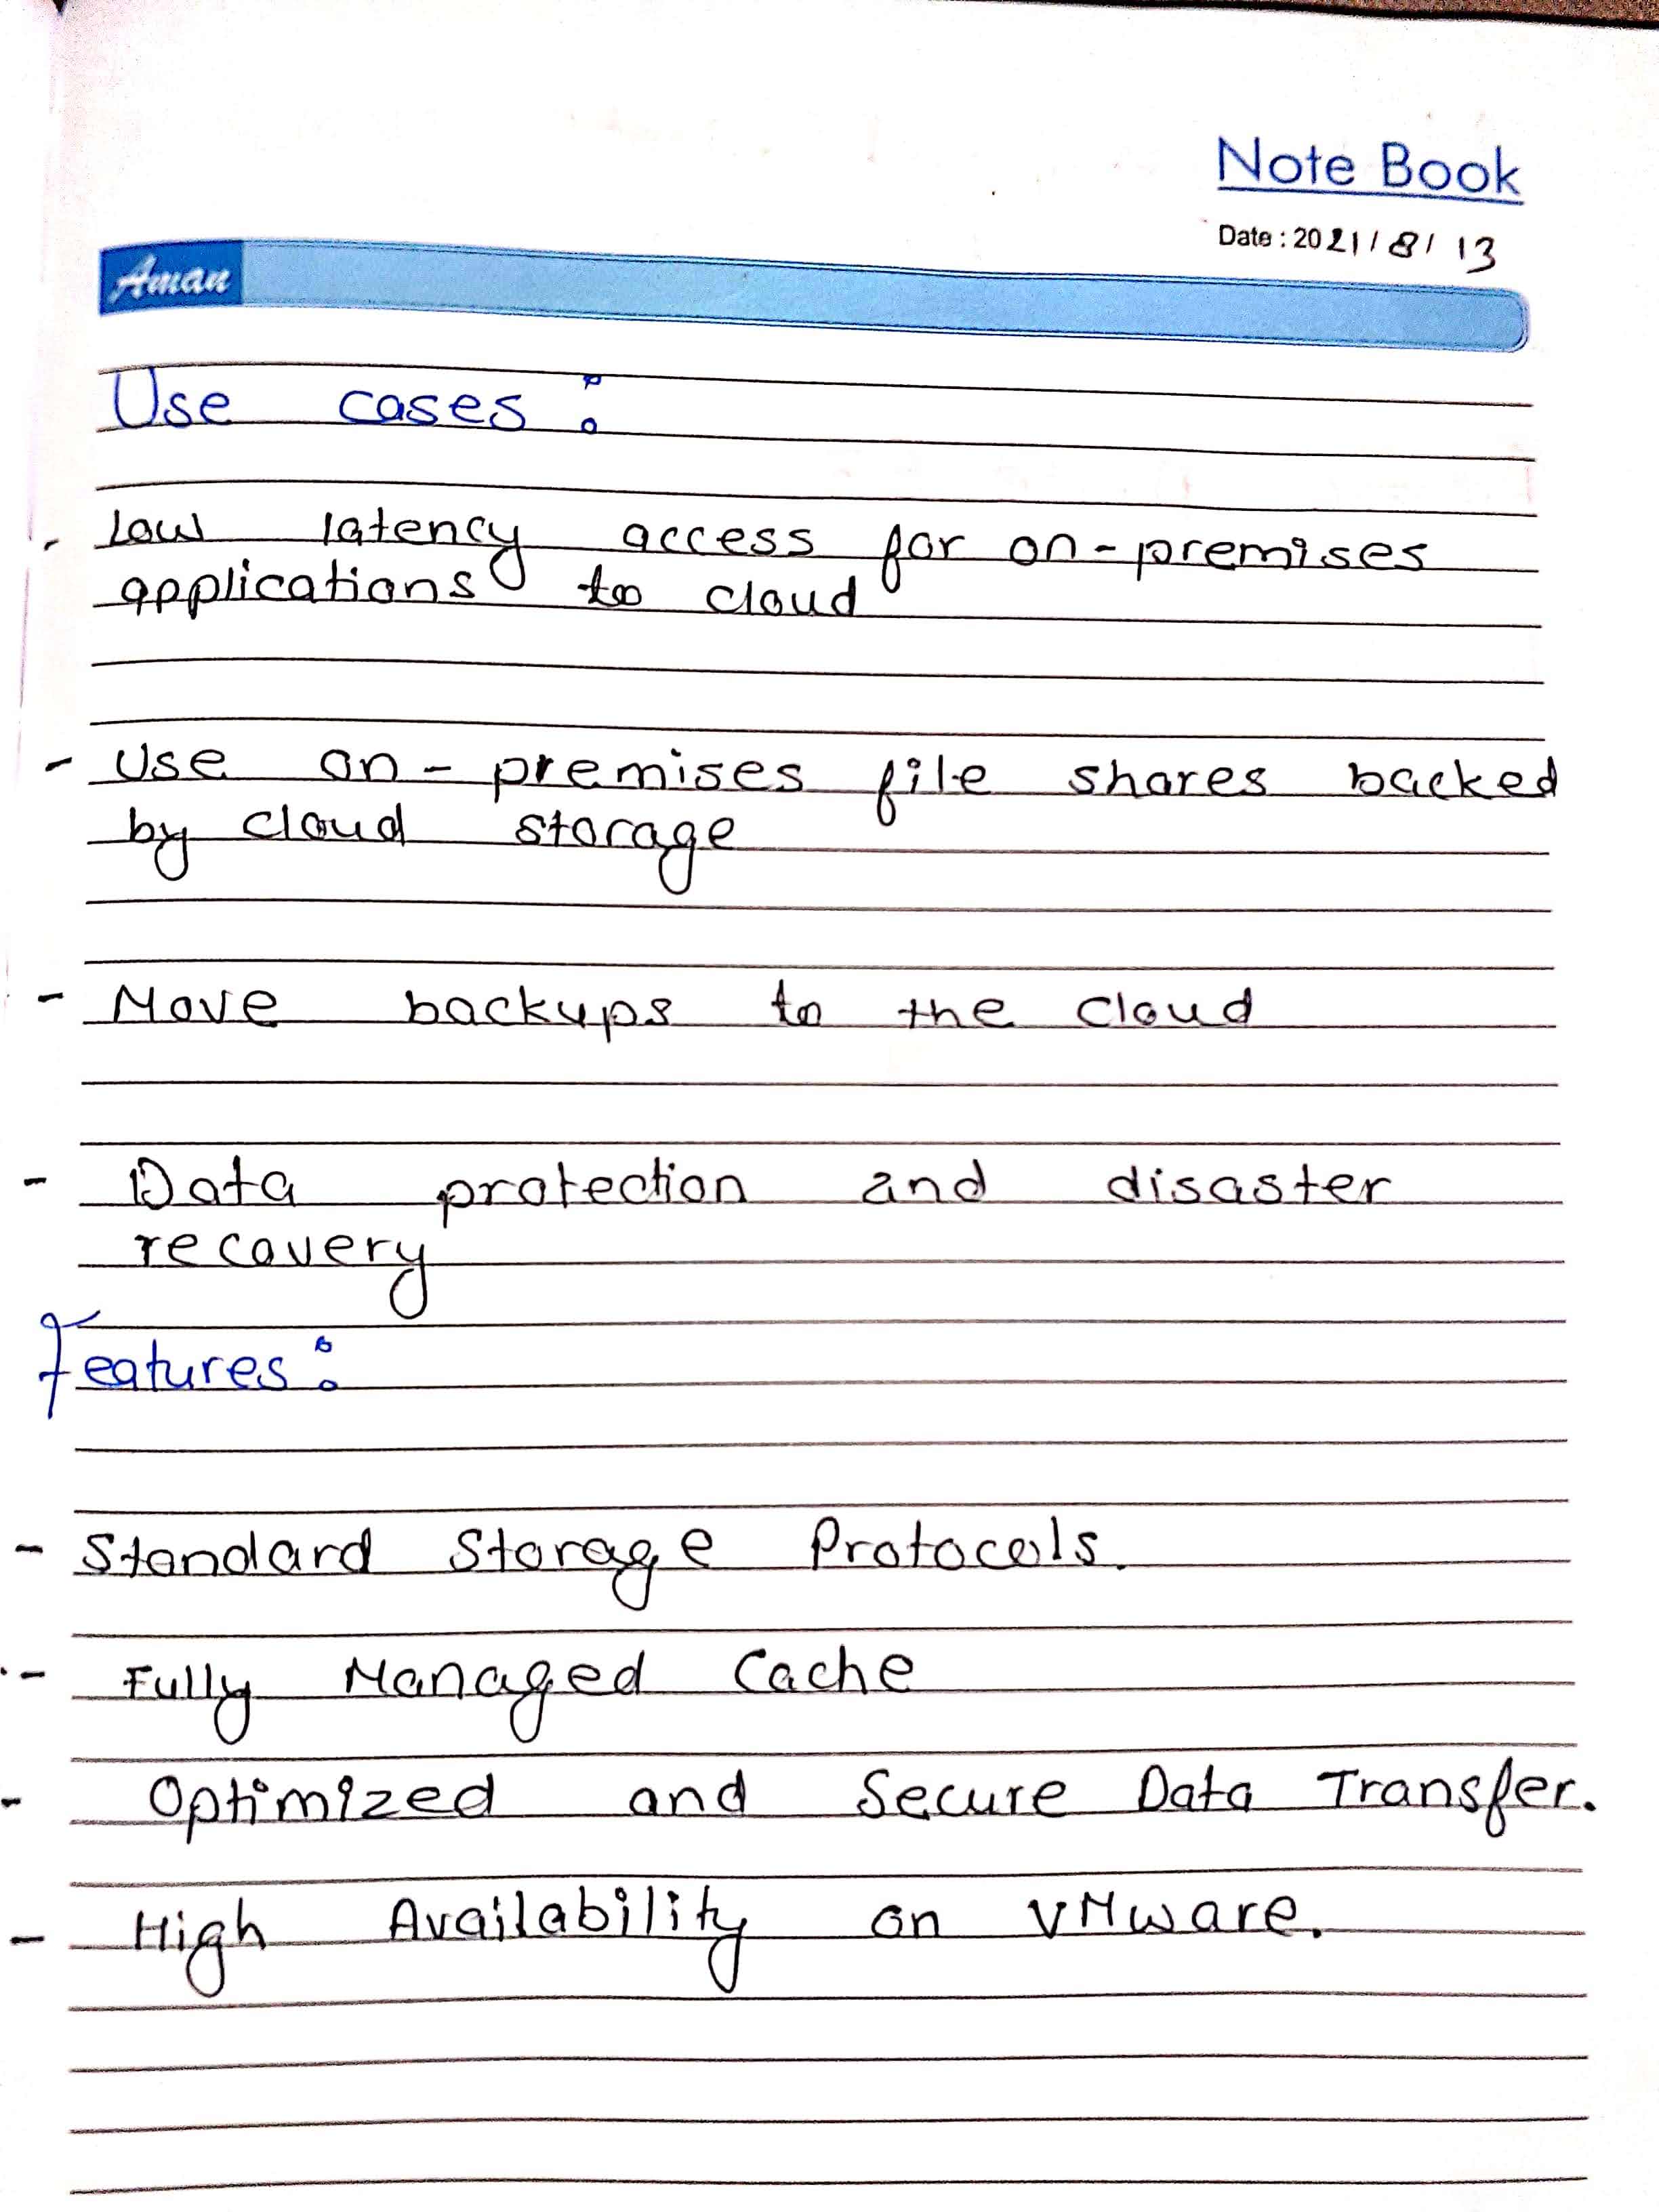 Note Book
Date : 2021 / 8 / 13
Aman
Use cases :
- Low latency access for on-premises
applications to cloud
- Use on-premises file shares backed
by cloud storage
- Move backups to the cloud
- Data protection and disaster
recovery
Features :
- Standard Storage Protocols.
- Fully Managed Cache
- Optimized and Secure Data Transfer.
- High Availability on VMware.